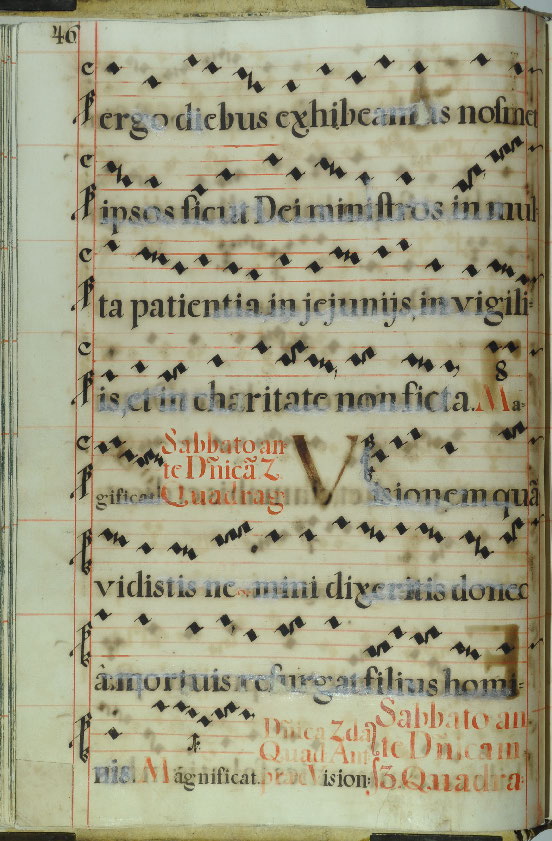 46
ergo diebus exhibeamus nosmet
ipsos sicut Dei ministros, in mul-
ta patientia, in jejunijs, in vigili-
8
is, et in charitate non ficta. Ma-
gnificat. Sabbato an
te Dñicã 2
Quadrag
Visionem quã
vidistis nemini dixeritis donec
à mortuis resurgat filius homi-
nis. Magnificat.
Dñica 2 da
Quad Ant
Vision:
Sabbato an
te Dñicam
3 Quadra-